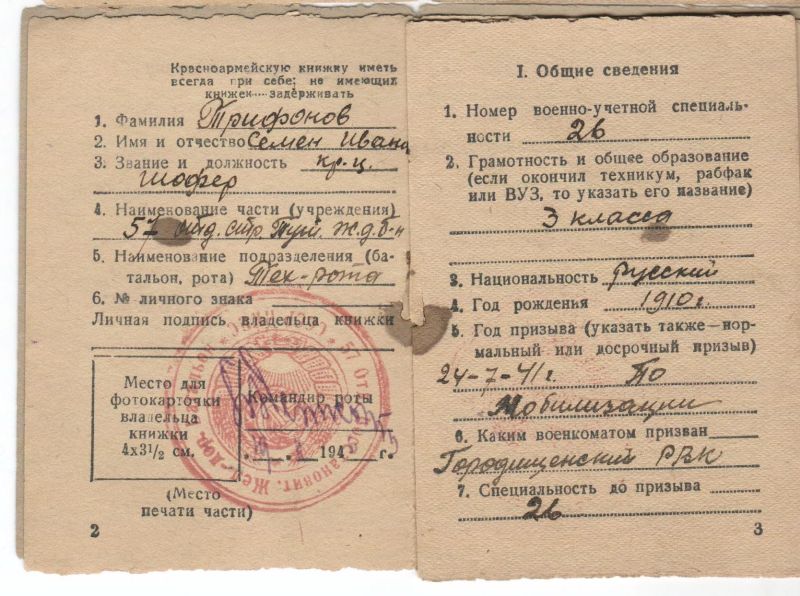 Красноармейскую книжку иметь
всегда при себе; не имеющих
книжек — задерживать
1. Фамилия Трифонов
2. Имя и отчество Семен Ивано
3. Звание и должность кр-ц.
шофер
4. Наименование части (учреждения)
57 отд. стр. Пут. ж.д. б-н
5. Наименование подразделения (ба-
тальон, рота) Тех-рота
6. № личного знака
Личная подпись владельца книжки
Место для
фотокарточки
владельца
книжки
4х3½ см.
Командир роты
194 г.
(Место
печати части)
2
I. Общие сведения
1. Номер военно-учетной специаль-
ности 26
2. Грамотность и общее образование
(если окончил техникум, рабфак
или ВУЗ, то указать его название)
3 класса
3. Национальность русский
4. Год рождения 1910 г.
5. Год призыва (указать также — нор-
мальный или досрочный призыв)
24-7-41 г. По
Мобилизации
6. Каким военкоматом призван
Городищенский РВК
7. Специальность до призыва
26
3